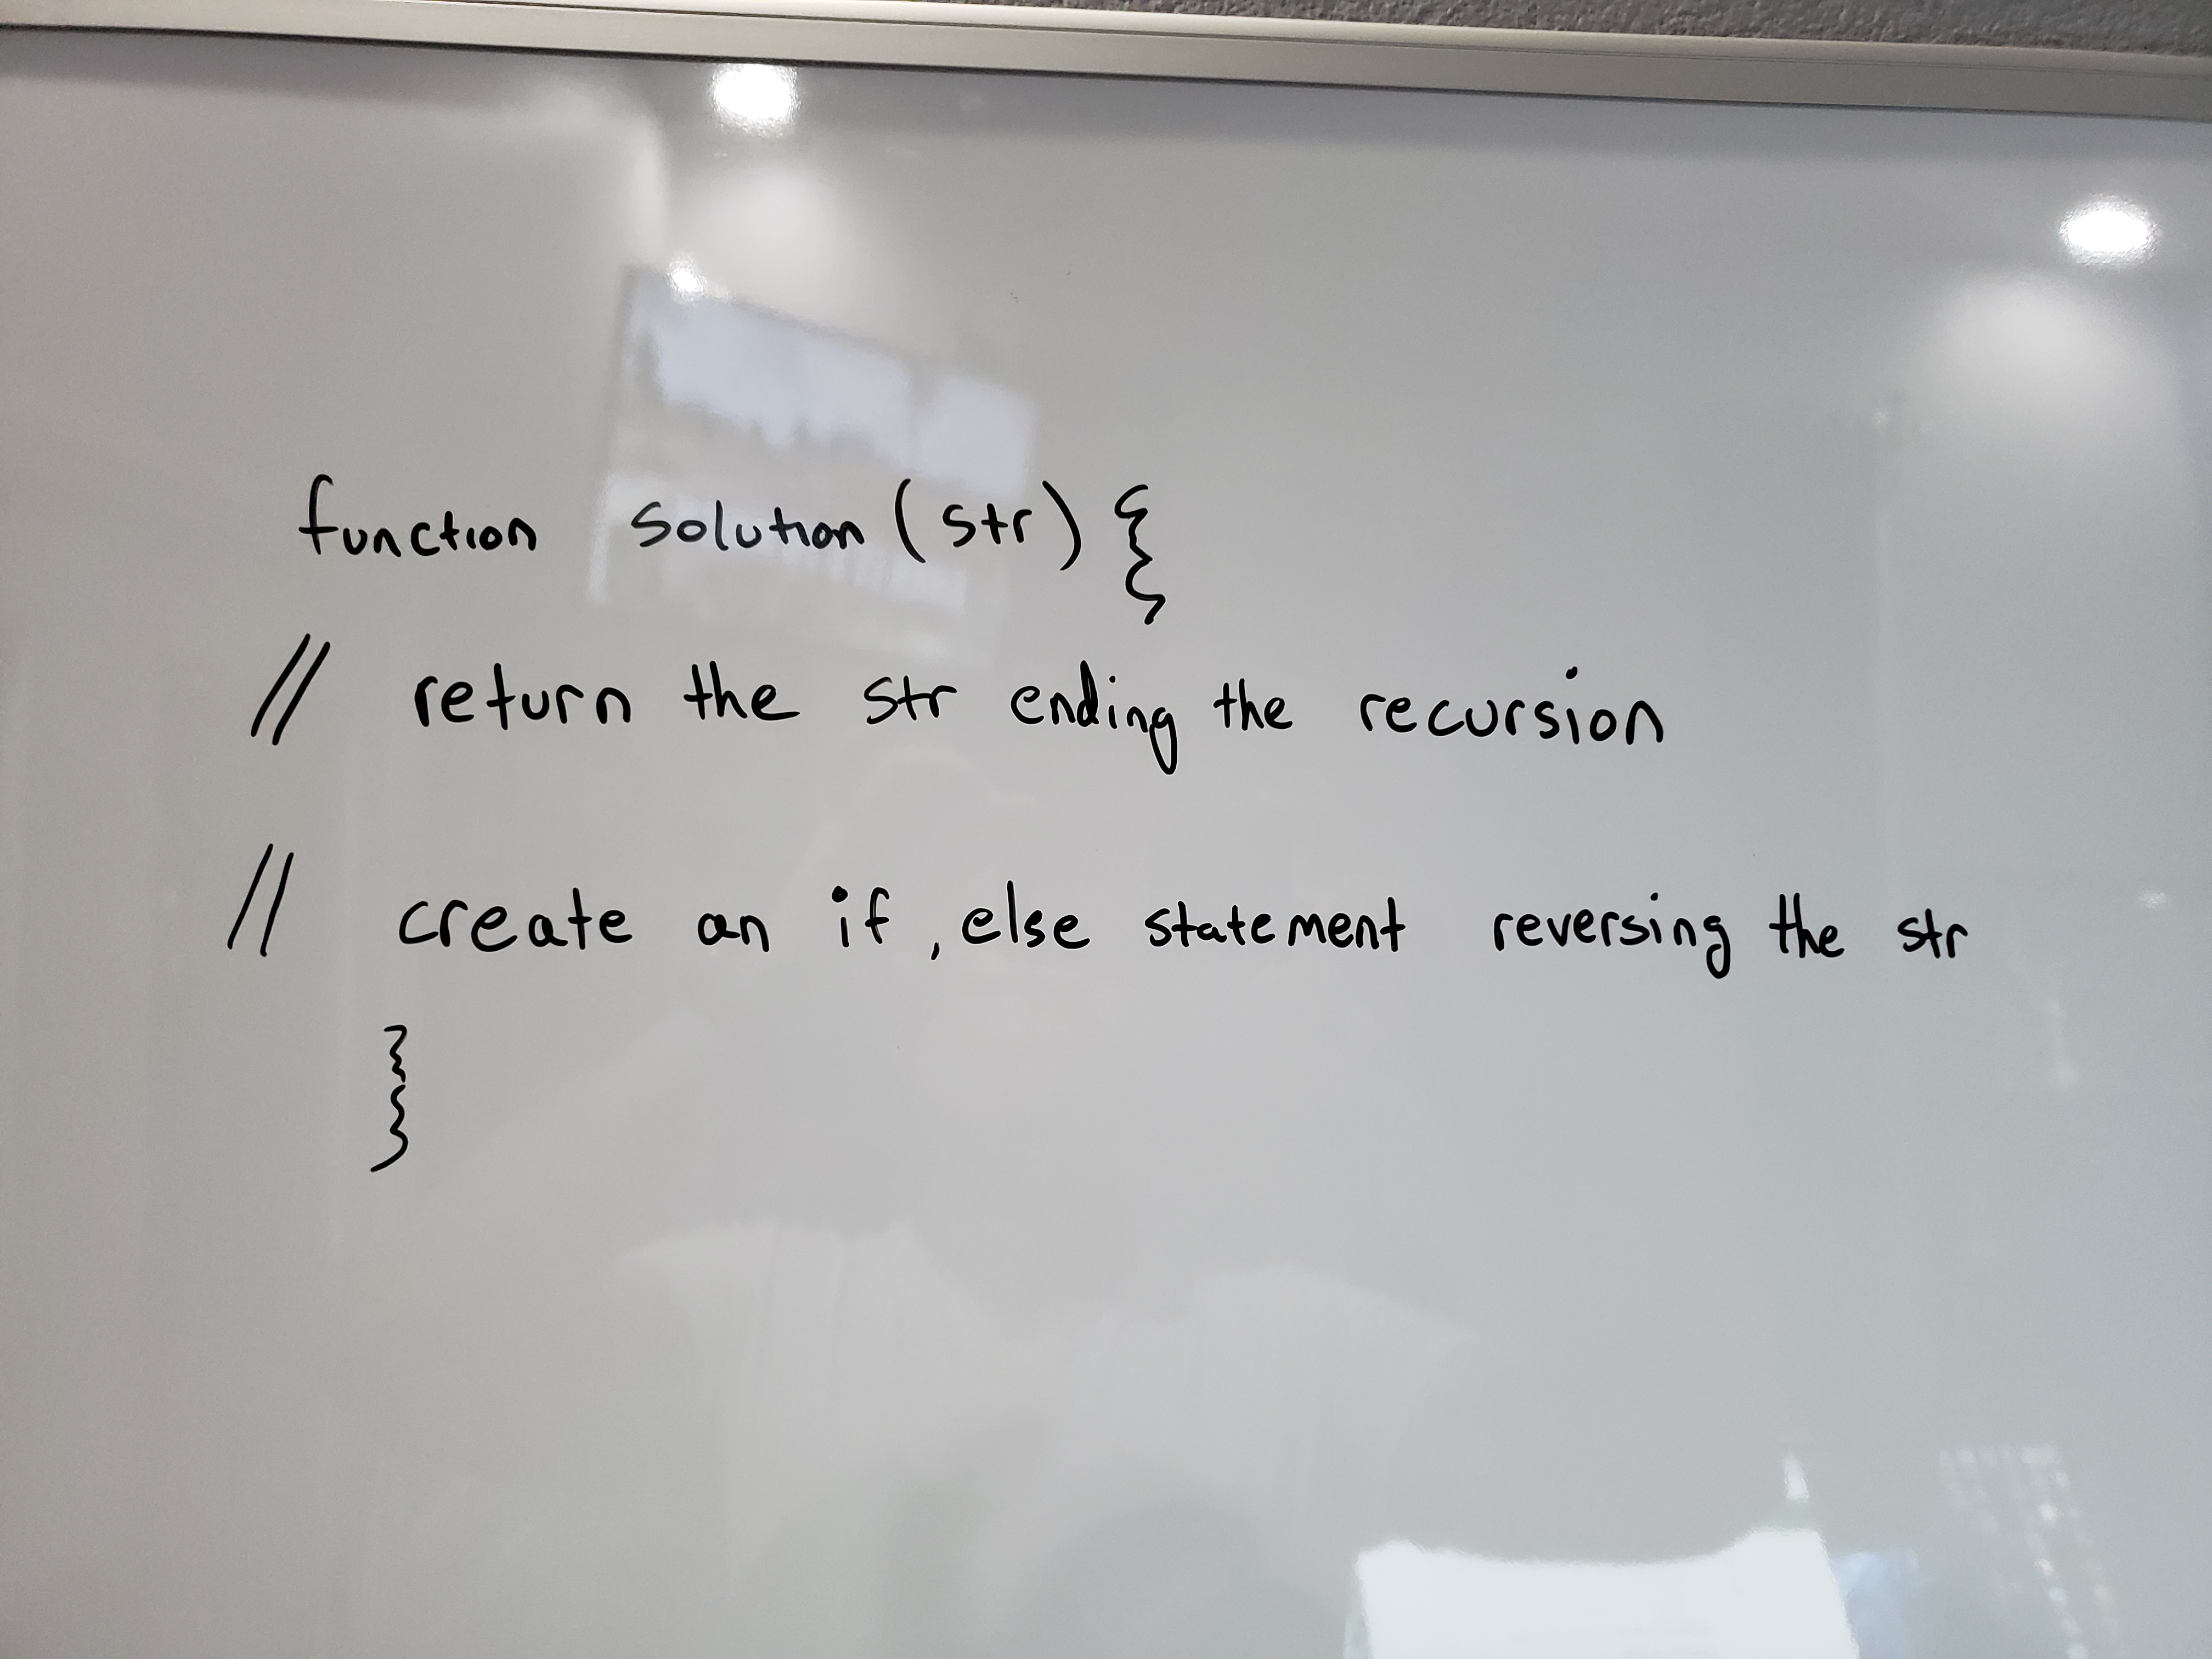 function solution (str) {
// return the str ending the recursion
// create an if, else statement reversing the str
}